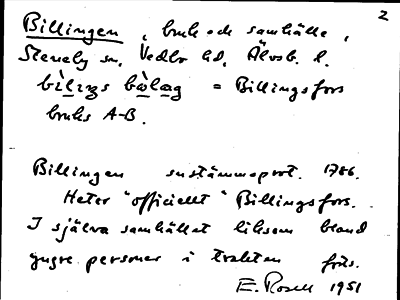 2
Billingen, bruk och samhälle,
Steneby sn, Vedbo hd, Älvsb. l.
bìlizs bòlag = Billingsfors
bruks A-B.
Billingen sustämmoprot. 1786.
Heter "officiellt" Billingsfors.
I själva samhället liksom bland
yngre personer i trakten förs.
E. Rosell 1951